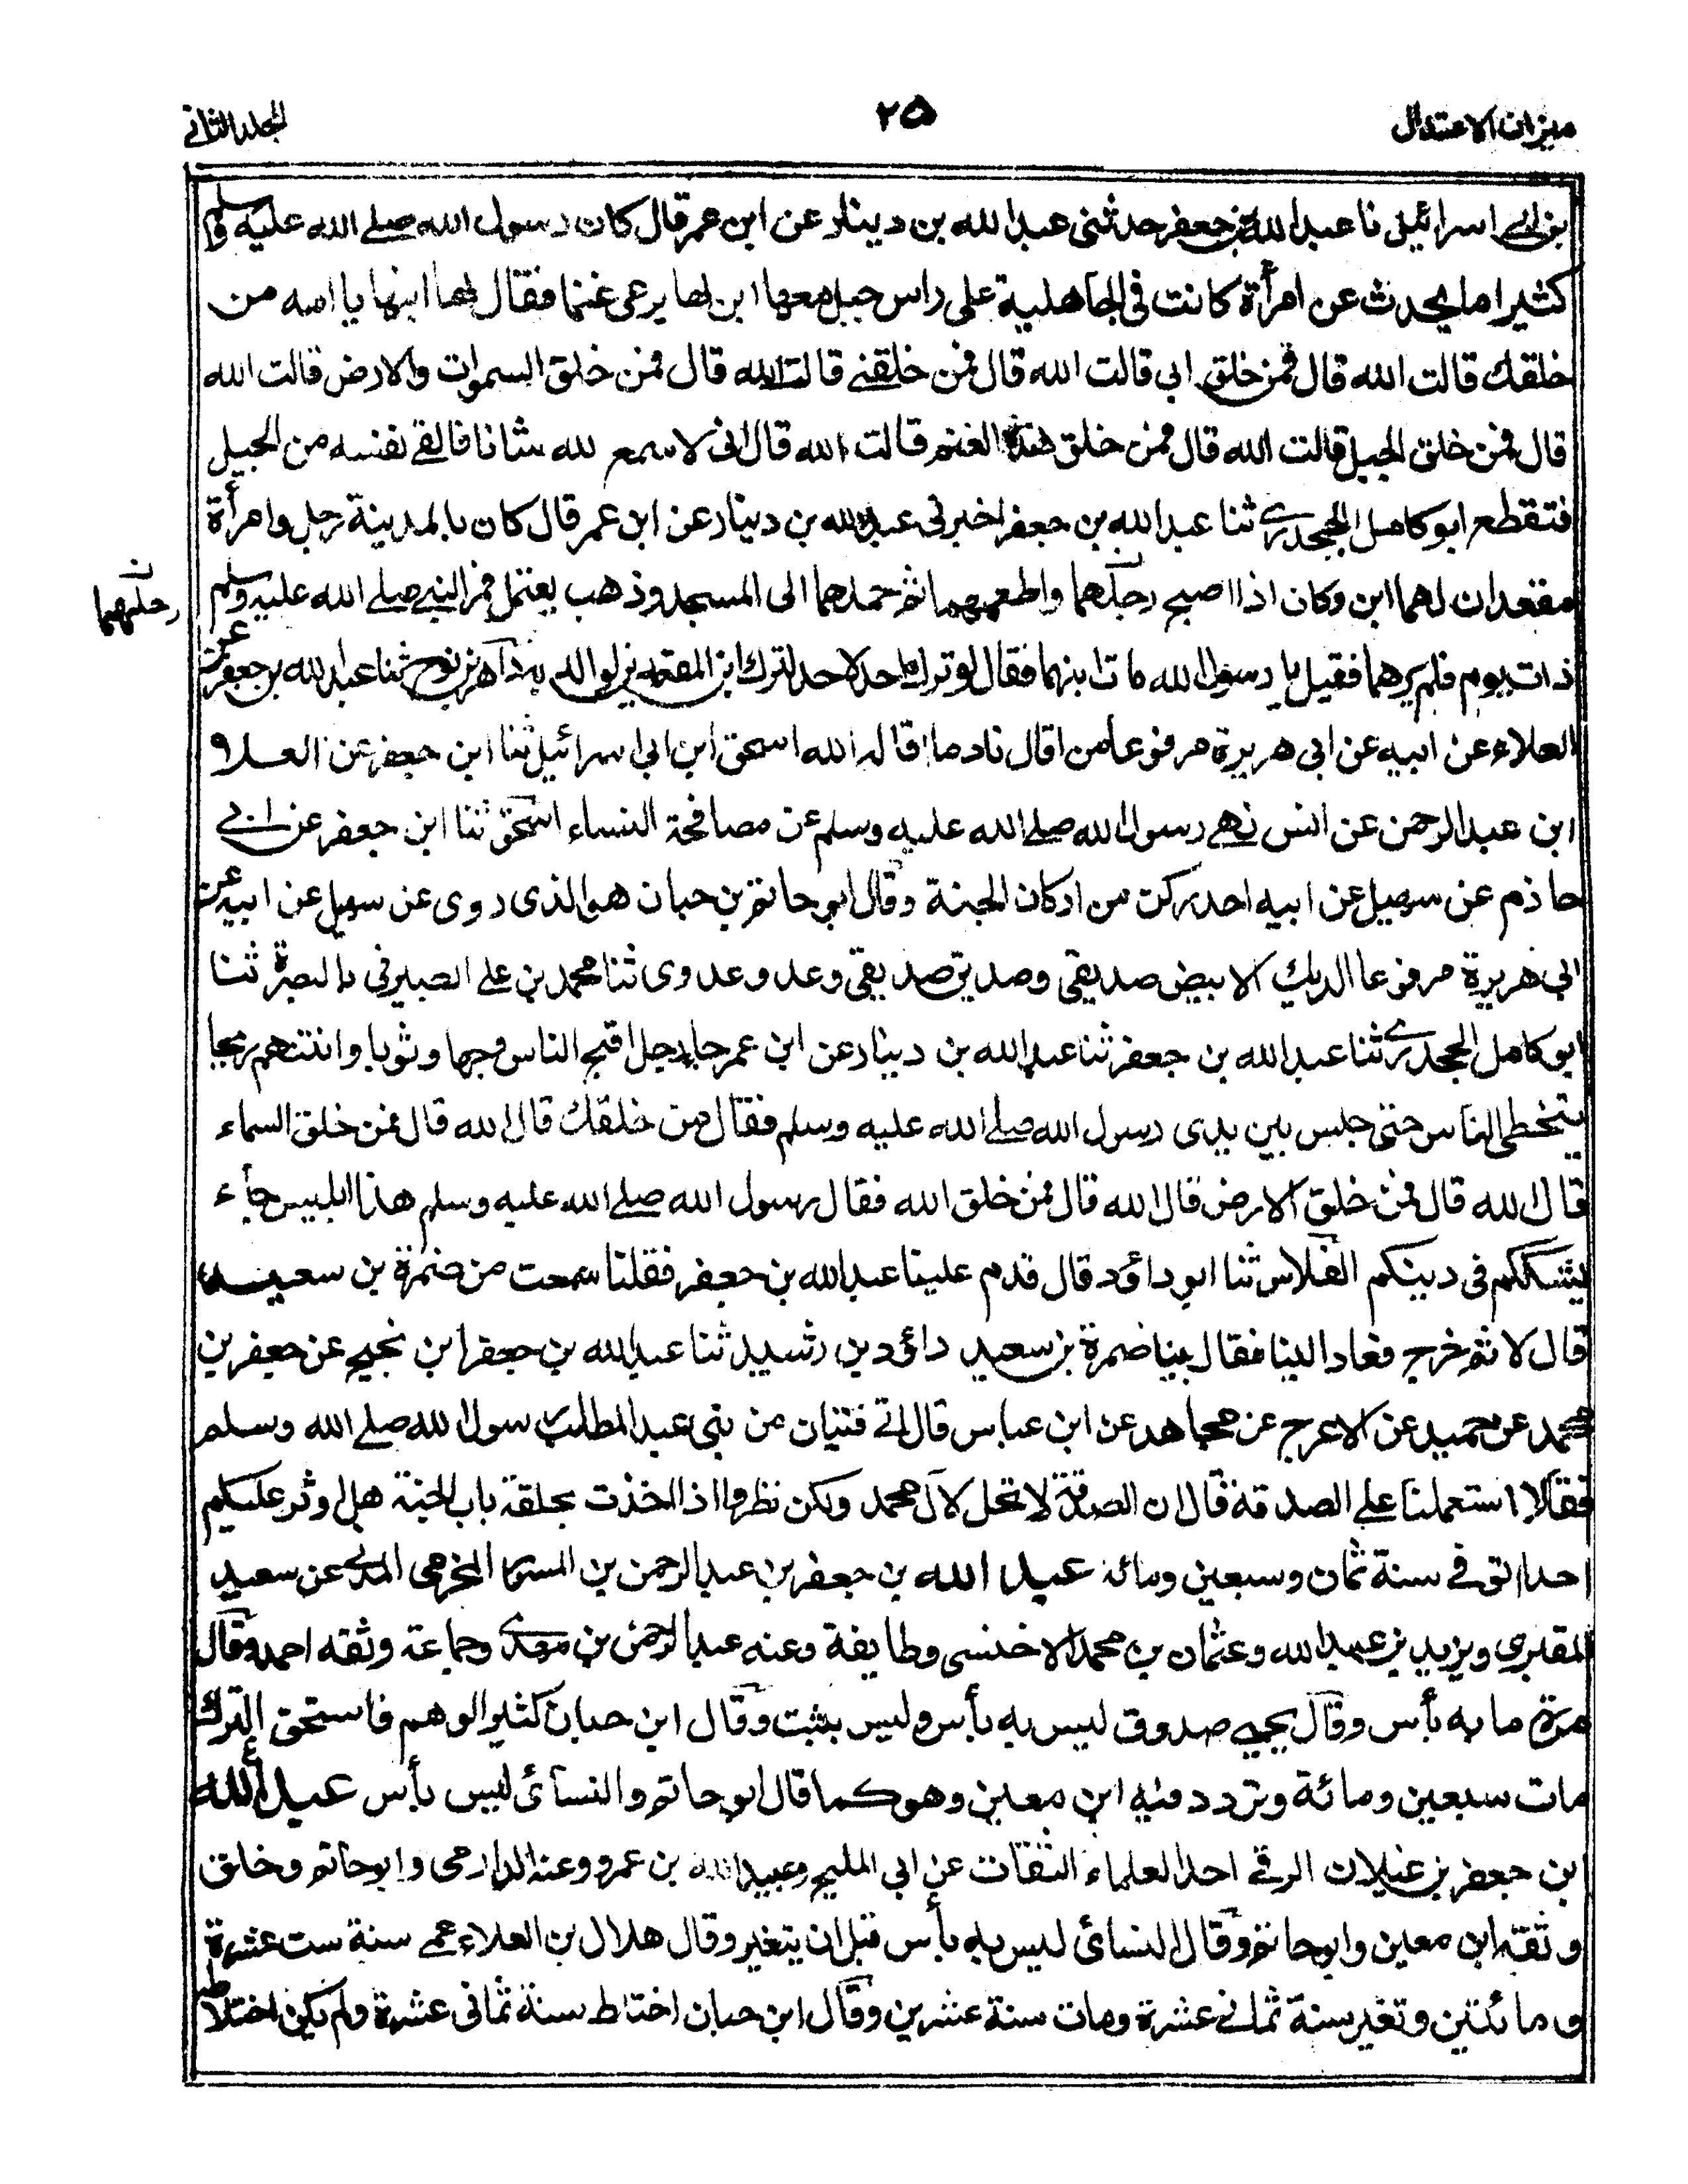 ميزان الاعتدال
٢٥
المجلد الثاني
بن ابي اسرائيل نا عبد الله بن جعفر حدثني عبد الله بن دينار عن ابن عمر قال كان رسول الله صلے الله عليه وسلم
كثيرا ما يحدث عن امرأة كانت في الجاهلية على راس جبل معها ابن لها يرعى غنما فقال لها ابنها يا امه من
خلقك قالت الله قال فمن خلق ابي قالت الله قال فمن خلقنے قالت الله قال فمن خلق السموات والارض قالت الله
قال فمن خلق الجبل قالت الله قال فمن خلق هذه الغنم قالت الله قال انى لا سمع لله شانا فالقے نفسه من الجبل
فتقطع ابو كامل الجحدرے ثنا عبد الله بن جعفر اخبرنى عبد الله بن دينار عن ابن عمر قال كان بالمدينة رجل وامرأة
مقعدان لهما ابن وكان اذا اصبح رجلهما واطعمهما ثم حملهما الى المسجد وذهب يعتمل فمر النبے صلے الله عليه وسلم
رحلهما
ذات يوم فلم يرهما فقيل يا رسول الله مات ابنهما فقال لو ترك احد لاحد لترك ابن المقعدين لوالديه داهر بن نوح ثنا عبد الله بن جعفر عن
العلاء عن ابيه عن ابى هريرة مرفوعا من اقال نادما اقاله الله اسحق ابن ابى اسرائيل ثنا ابن جعفر عن العلاء
ابن عبد الرحمن عن انس نهے رسول الله صلے الله عليه وسلم عن مصافحة النساء اسحق ثنا ابن جعفر عن ابے
حازم عن سهيل عن ابيه احد ركن من اركان الجنة وقال ابو حاتم بن حبان هو الذى روى عن سهيل عن ابيه عن
ابي هريرة مرفوعا الديك الابيض صديقي وصديق صديقي وعدو عدوى ثنا محمد بن علے الصيرفى بالبصرة ثنا
ابو كامل الجحدرے ثنا عبد الله بن جعفر ثنا عبد الله بن دينار عن ابن عمر جاء رجل اقبح الناس وجها وثوبا وانتنهم ريحا
يتخطى الناس حتى جلس بين يدى رسول الله صلے الله عليه وسلم فقال من خلقك قال الله قال فمن خلق السماء
قال الله قال فمن خلق الارض قال الله قال فمن خلق الله فقال رسول الله صلے الله عليه وسلم هذا ابليس جاء
ليشككم في دينكم الفلاس ثنا ابو داؤد قال قدم علينا عبد الله بن جعفر فقلنا سمعت من ضمرة بن سعيد
قال لا ثم خرج فعاد الينا فقال ثنا ضمرة بن سعيد داؤد بن رشيد ثنا عبد الله بن جعفر ابن نجيح عن جعفر بن
محمد عن حميد عن الاعرج عن مجاهد عن ابن عباس قال اتے فتيان من بنى عبد المطلب رسول الله صلے الله وسلم
فقالا استعملنا علے الصدقة فقال ان الصدقة لا تحل لال محمد ولكن نظروا اذا اخذت بحلقة باب الجنة هل اوثر عليكم
احدا توفے سنة ثمان وسبعين ومائة عبد الله بن جعفر بن عبد الرحمن بن المسور المخرمى المدنے عن سعيد
المقبري ويزيد بن عبد الله وعثمان بن محمد الاخنسى وطايفة وعنه عبد الرحمن بن مهدے وجماعة وثقه احمد وقال
مرة ما به بأس وقال يحيے صدوق ليس به بأس وليس بثبت وقال ابن حبان كثير الوهم فاستحق الترك
مات سبعين ومائة وتردد فيه ابن معين وهو كما قال ابو حاتم والنسائى ليس بأس عبد الله
ابن جعفر بن غيلان الرقے احد العلماء الثقات عن ابي المليح وعبيد الله بن عمرو وعنه الدارمى وابو حاتم وخلق
وثقه ابن معين وابو حاتم وقال النسائى ليس به بأس قبل ان يتغير وقال هلال بن العلاء عمے سنة ست عشرة
ومائتين وتغير سنة ثمانے عشرة ومات سنة عشرين وقال ابن حبان اختلط سنة ثمانى عشرة ولم يكن اختلاطه